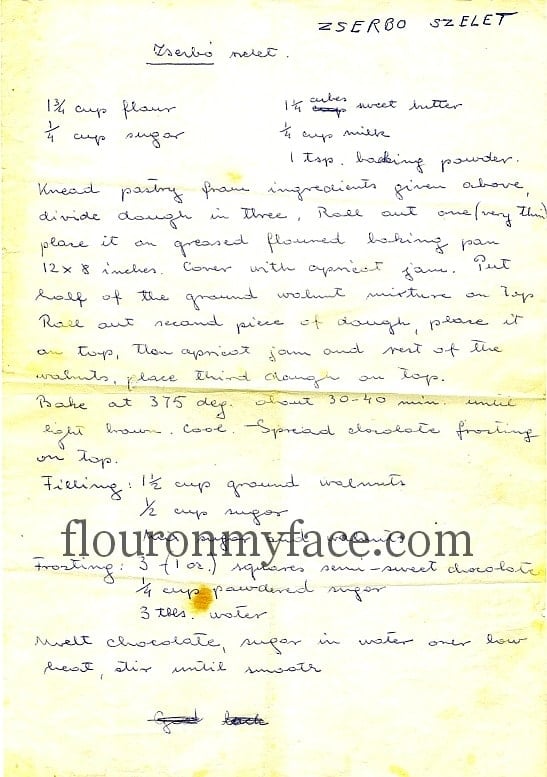 ZSERBO SZELET
Zserbó szelet.
1 3/4 cup flour 1 1/4 cubes sweet butter
1/4 cup sugar 1/4 cup milk
1 tsp. backing powder.
Knead pastry from ingredients given above,
divide dough in three. Roll out one (very thin)
place it on greased floured baking pan
12 x 8 inches. Cover with apricot jam. Put
half of the ground walnut mixture on top
Roll out second piece of dough, place it
on top, then apricot jam and rest of the
walnuts, place third dough on top.
Bake at 375 deg. about 30-40 min. until
light brown. Cool. Spread chocolate frosting
on top.
Filling: 1 1/2 cup ground walnuts
1/2 cup sugar
Mix sugar and walnuts
flouronmyface.com
Frosting: 3 (1 oz.) squares semi-sweet chocolate
1/4 cup pawdered sugar
3 tbls. water
Melt chocolate, sugar in water over low
heat, stir until smooth
Good luck